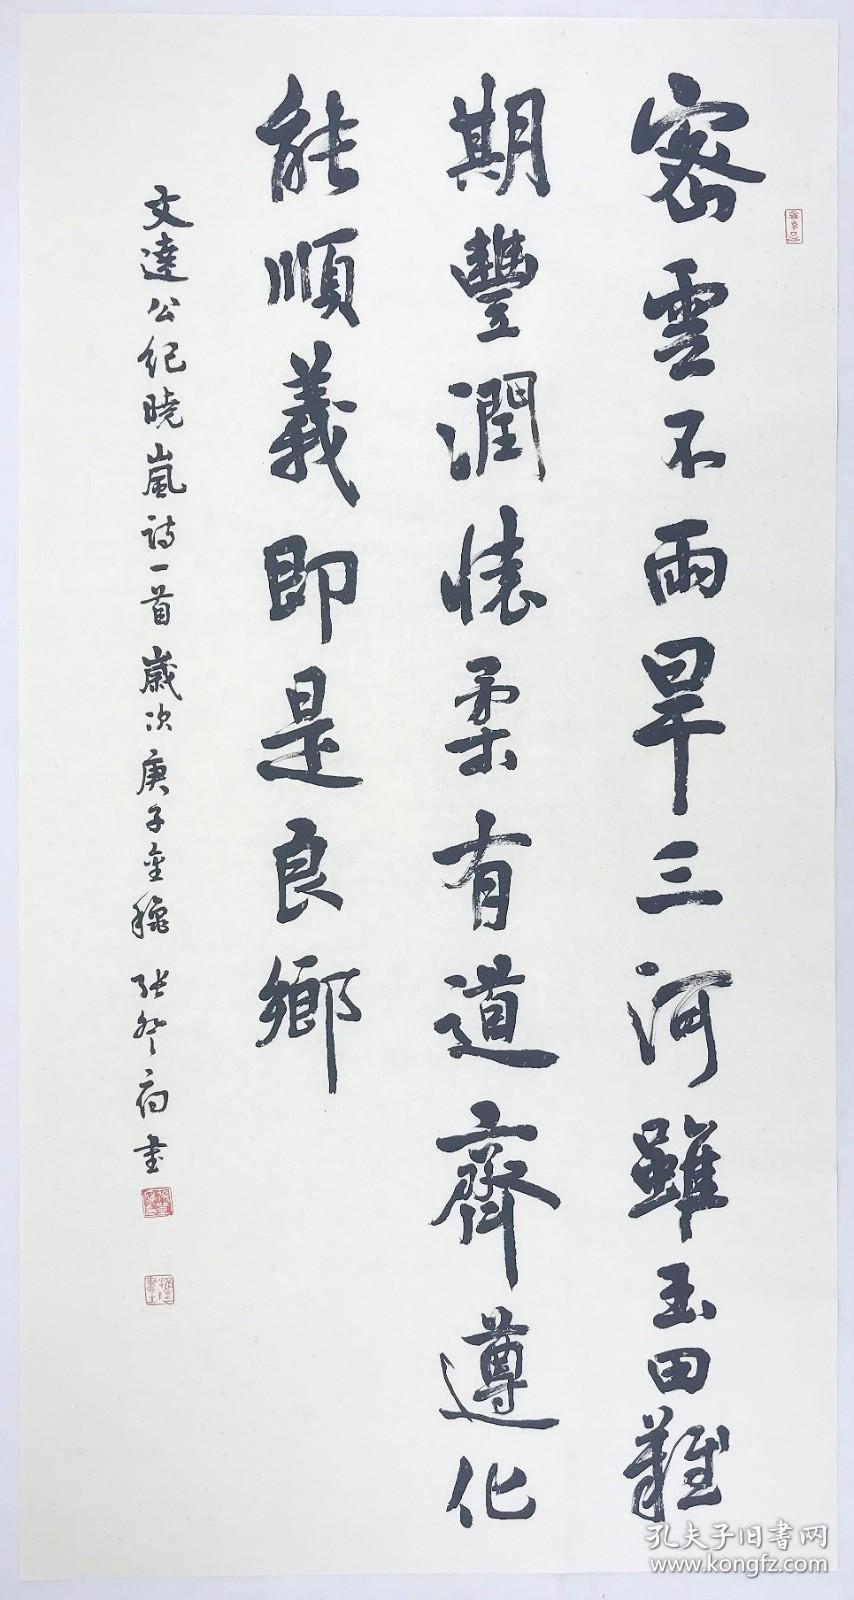 密雲不雨旱三河雖玉田難
期豐潤懐柔有道齊遵化
能順義即是良鄉
文達公纪晓嵐詩一首歲次庚子金穐张冬府書
孔夫子旧書网
www.kongfz.com